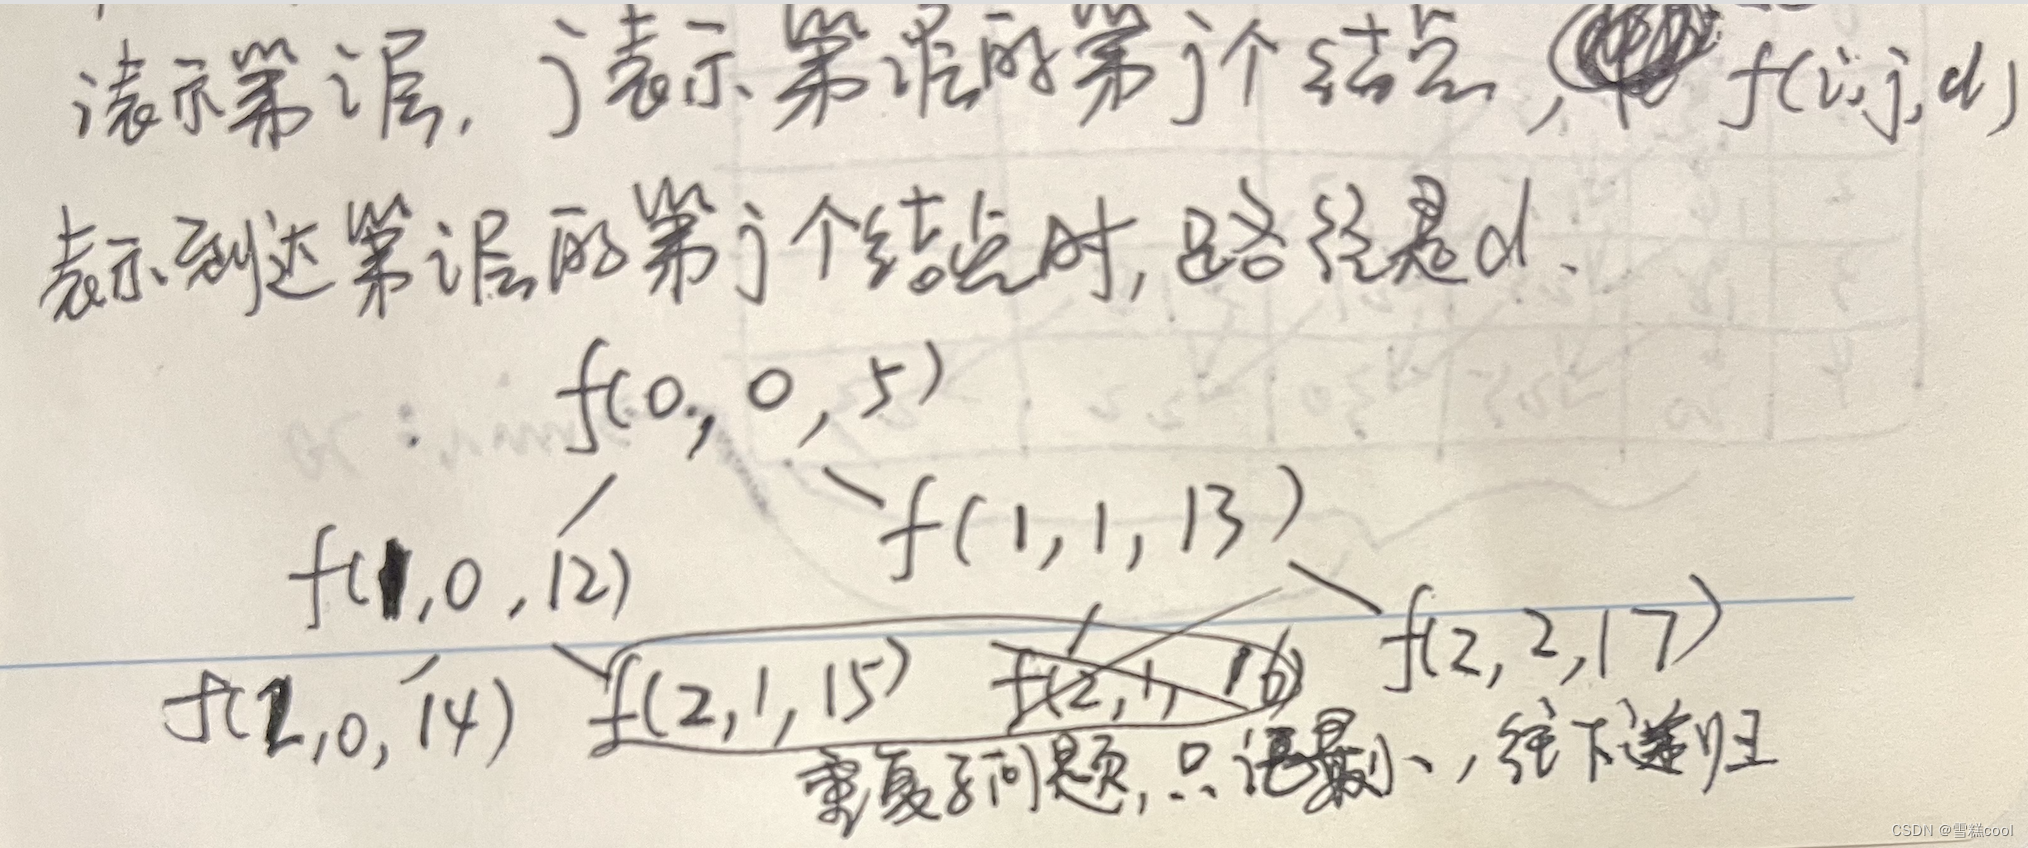 i表示第i层, j表示第i层的第j个结点, f(i,j,d)
表示到达第i层的第j个结点时,路径是d.
f(0,0,5)
f(1,0,12) f(1,1,13)
f(2,0,14) f(2,1,15) f(2,1,16) f(2,2,17)
重复子问题,只记最小,往下递归
CSDN @雪糕cool